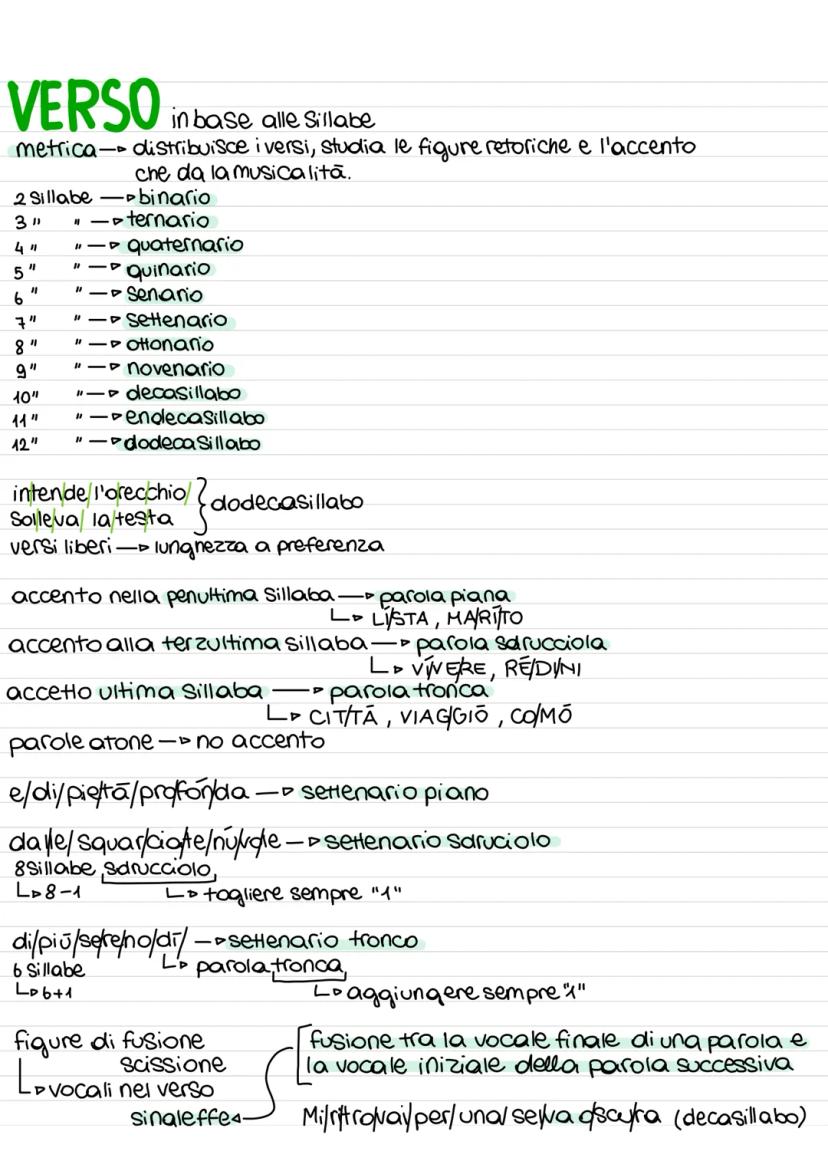 VERSO in base alle sillabe
metrica → distribuisce i versi, studia le figure retoriche e l'accento
che da la musicalitā.
2 sillabe → binario
3 " " → ternario
4 " " → quaternario
5 " " → quinario
6 " " → senario
7 " " → settenario
8 " " → ottonario
9 " " → novenario
10 " " → decasillabo
11 " " → endecasillabo
12 " " → dodecasillabo
in/ten/de/l'o/rec/chio/ } dodecasillabo
sol/le/va/ la/tes/ta
versi liberi → lunghezza a preferenza
accento nella penultima sillaba → parola piana
↳ LÍ/STA, MA/RÍ/TO
accento alla terzultima sillaba → parola sdrucciola
↳ VÍ/VE/RE, RÉ/DI/NI
accetto ultima sillaba → parola tronca
↳ CIT/TĀ, VIAG/GIŌ, CO/MŌ
parole atone → no accento
e/di/pie/tā/pro/fón/da → settenario piano
dal/le/squar/cia/te/nú/vo/le → settenario sdruciolo
8 sillabe sdrucciolo
↳ 8-1 ↳ togliere sempre "1"
di/piū/se/re/no/dī/ → settenario tronco
6 sillabe ↳ parola tronca
↳ 6+1 ↳ aggiungere sempre "1"
figure di fusione fusione tra la vocale finale di una parola e
scissione la vocale iniziale della parola successiva
↳ vocali nel verso
sinaleffe Mi/ri/tro/vai/per/una/ sel/va o/scu/ra (decasillabo)